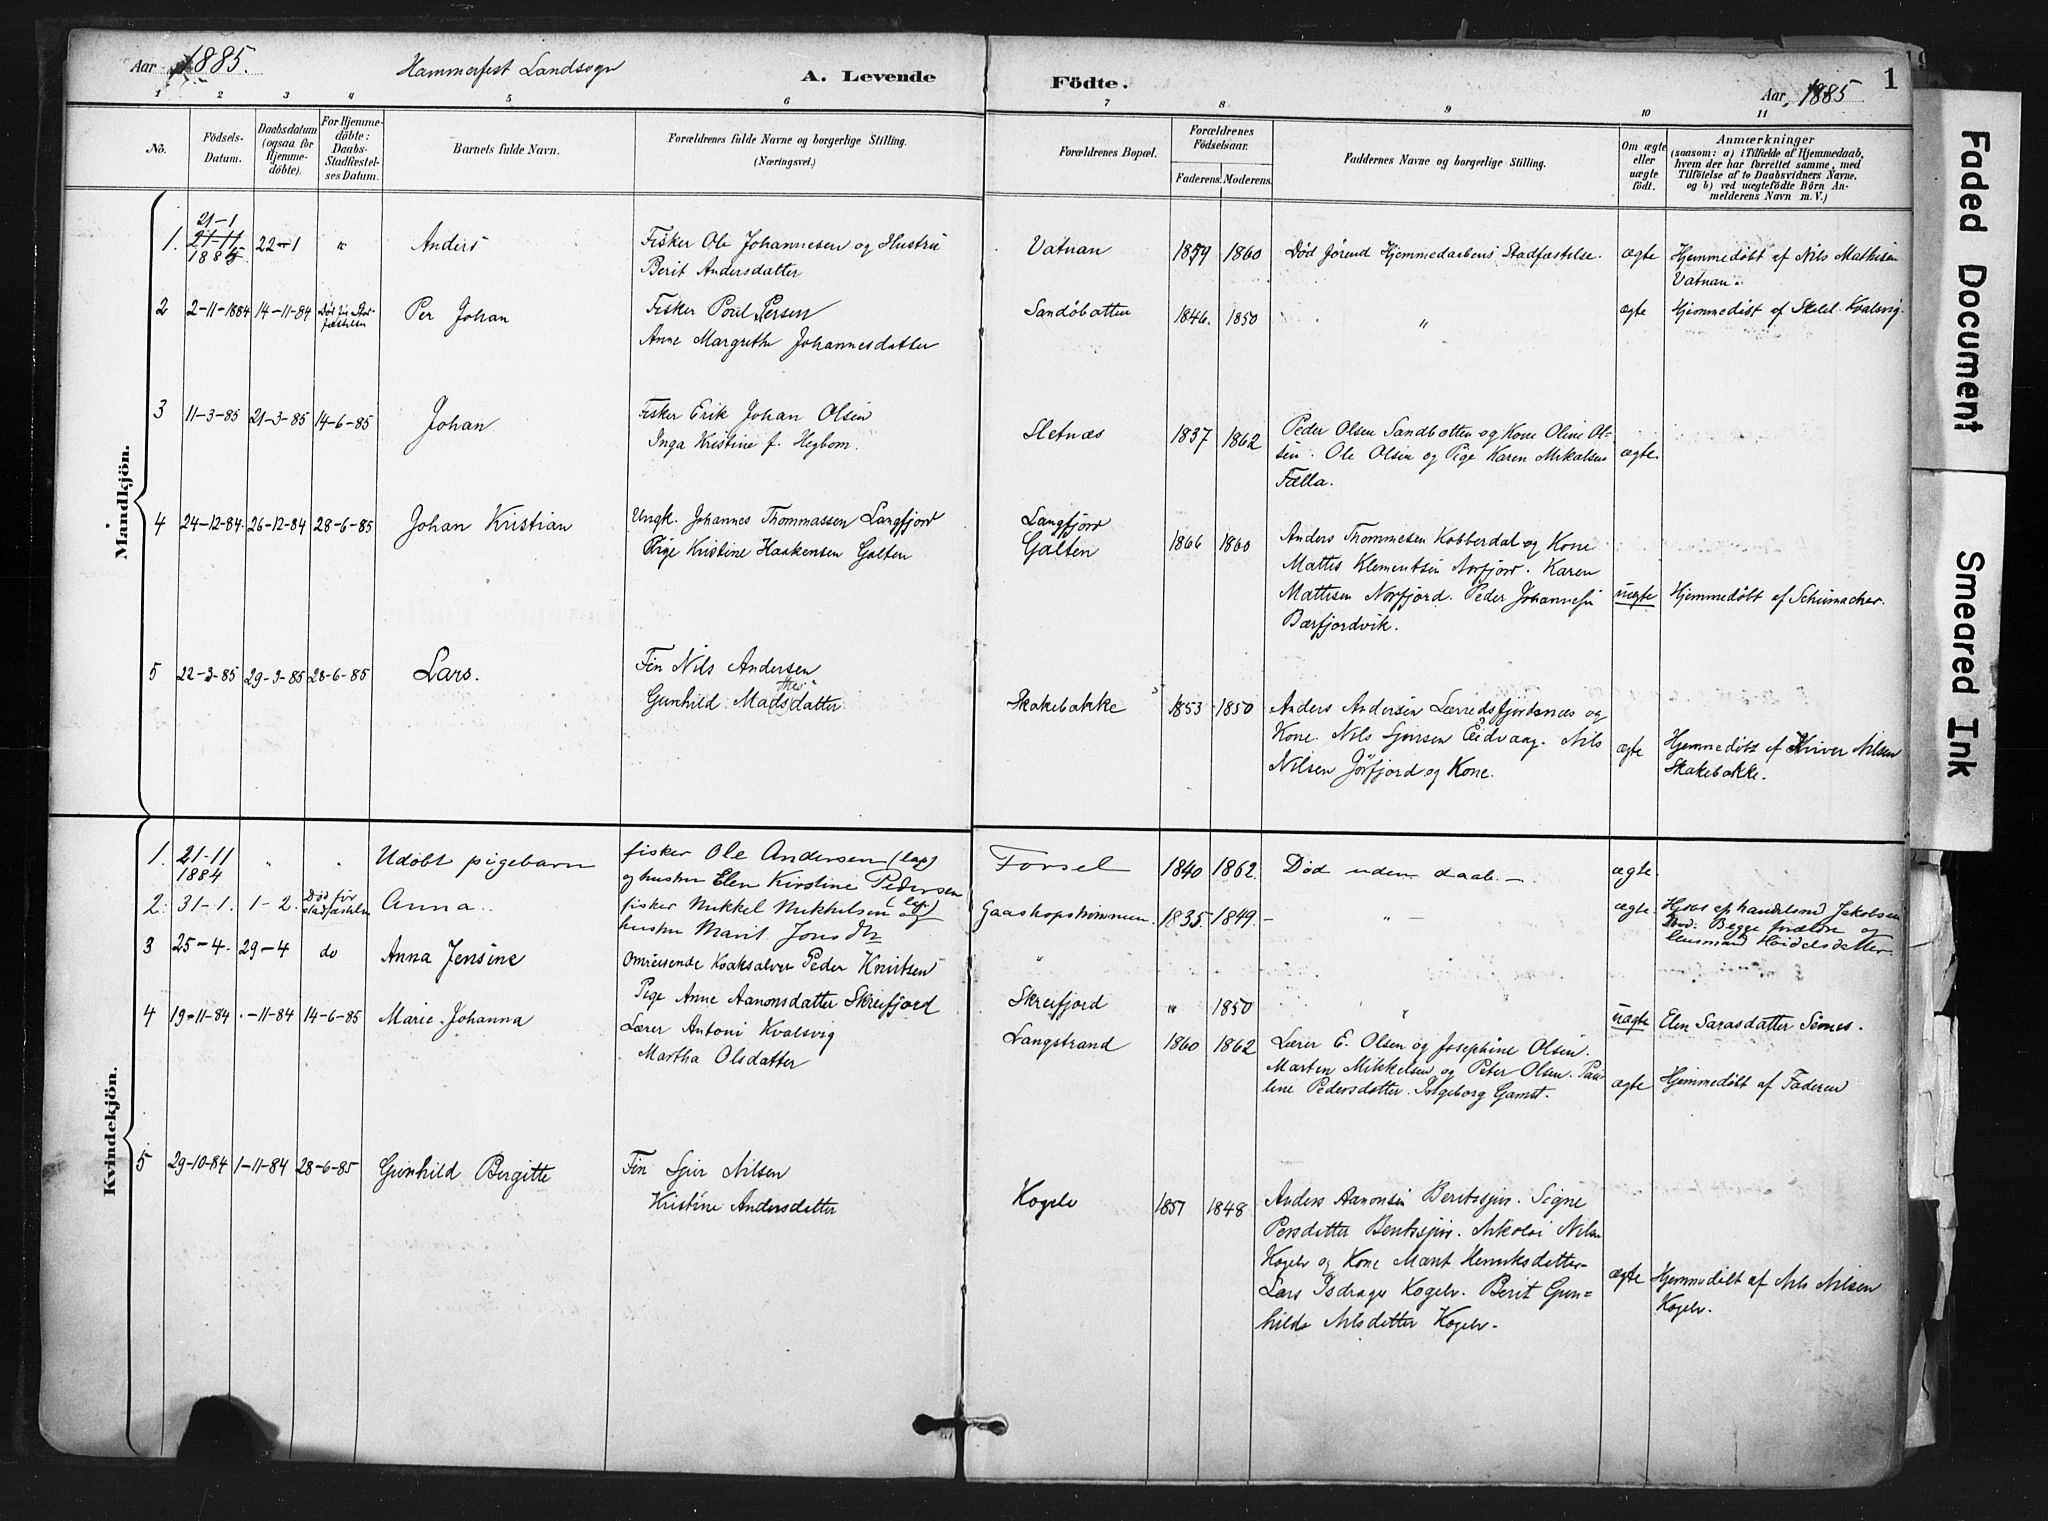 Aar 1885. Hammerfest Landsogn A. Levende Födte. Aar 1885 1
1 2 3 4 5 6 7 8 9 10 11
No. Födsels-Datum. Daabsdatum (ogsaa for Hjemmedöbte). For Hjemmedöbte: Daabs-Stadfæstelses Datum. Barnets fulde Navn. Forældrenes fulde Navne og borgerlige Stilling. (Næringsvei.) Forældrenes Bopæl. Forældrenes Födselsaar. Faderens. Moderens. Faddernes Navne og borgerlige Stilling. Om ægte eller uægte födt. Anmærkninger (saasom: a) i Tilfælde af Hjemmedaab, hvem der har forrettet samme, med Tilföielse af to Daabsvidners Navne, og b) ved uægtefödte Börn Anmelderens Navn m. V.)
Mandkjön.
1. 21-1 21-11 1885 22-1 " Anders Fisker Ole Johannesen og Hustru
Berit Andersdatter
Vatnan 1859 1860 Död förend Hjemmedaabens Stadfæstelse. ægte Hjemmedöbt af Nils Mathisen
Vatnan.
2 2-11-1884 14-11-84 Död för Stadfæstelsen Per Johan Fisker Poul Persen
Anne Margrethe Johannesdatter
Sandöbotten 1846. 1850 " ægte Hjemmedöbt af Kvalsvig.
3 11-3-85 21-3-85 14-6-85 Johan Fisker Erik Johan Olsen
Inga Kristine f. Hegbom.
Sletnæs 1837 1862 Peder Olsen Sandbotten og Kone Oline Ol-
sen. Ole Olsen og Pige Karen Mikalsen
Fælla.
ægte.
4 24-12-84. 26-12-84 28-6-85 Johan Kristian Ungk. Johannes Thommassen Langfjord
Pige Kristine Haakensen Galten
Langfjord
Galten 1866 1860 Anders Thommesen Kobberdal og Kone
Mattis Klementsen Norfjord. Karen
Mathisen Norfjord. Peder Johannesen
Bærfjordvik.
uægte Hjemmedöbt af Schumacher.
5 22-3-85 29-3-85 28-6-85 Lars. Fin Nils Andersen
Gunhild Madsdatter
Skakebakke 1853 1850 Anders Andersen Lærredsfjordsnæs og
Kone. Nils Sjursen Eidvaag. Nils
Nilsen Jörfjord og Kone.
ægte Hjemmedöbt af Kiver Nilsen
Skakebakke.
Kvindekjön.
1. 21-11 1884 " " Udöbt pigebarn fisker Ole Andersen (lap)
og hustru Elen Kirstine Pedersen (lap)
Forsel 1840 1862. Död uden daab. - ægte
2. 31-1. 1-2. Död för stadfæstelse Anna. fisker Mikkel Mikkelsen og
hustru Marit Jonsdtr
Gaashopshommen. 1835. 1849. - " - ægte. Hjdbt af handelsmd Jakobsen
Begge forældre og
3 25-4. 29-4 do Anna Jensine Omreisende Kvaksalver Peder Knutsen
Pige Anne Aanonsdatter Skreifjord
"
Skreifjord " 1850 " uægte Elen Sarasdatter
4 19-11-84 . -11-84 14-6-85 Marie Johanna Lærer Antoni Kvalsvig
Martha Olsdatter
Langstrand 1860 1862 Lærer E. Olsen og Josephine Olsen.
Marten Mikkelsen og Peter Olsen. Pau-
line Pedersdatter. Ingeborg Gamst.
ægte Hjemmedöbt af Faderen
5 29-10-84 1-11-84 28-6-85 Gunhild Bergitte Fin Sjur Nilsen
Kristine Andersdatter
Kogelv 1851 1848 Anders Aanonsen Beritssjur. Signe
Persdatter Beritssjur. Nikolai Nilsen
Kogelv og Kone Marit Henriksdatter
Lars Isdrager Kogelv. Berit Gun-
hilds Nilsdatter Kogelv.
ægte Hjemmedöbt af Nils Nilsen
Kogelv.
Faded Document
Smeared Ink